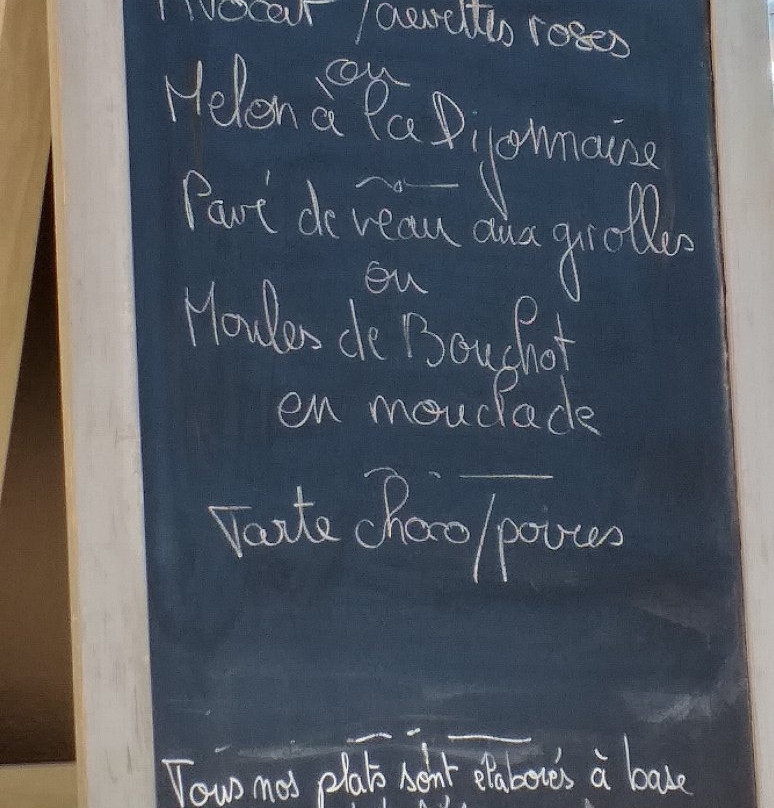 Avocat / crevettes roses
ou
Melon à la Dijonnaise
Pavé de veau aux girolles
ou
Moules de Bouchot
en mouclade
Tarte choco/poires
Tous nos plats sont élaborés à base